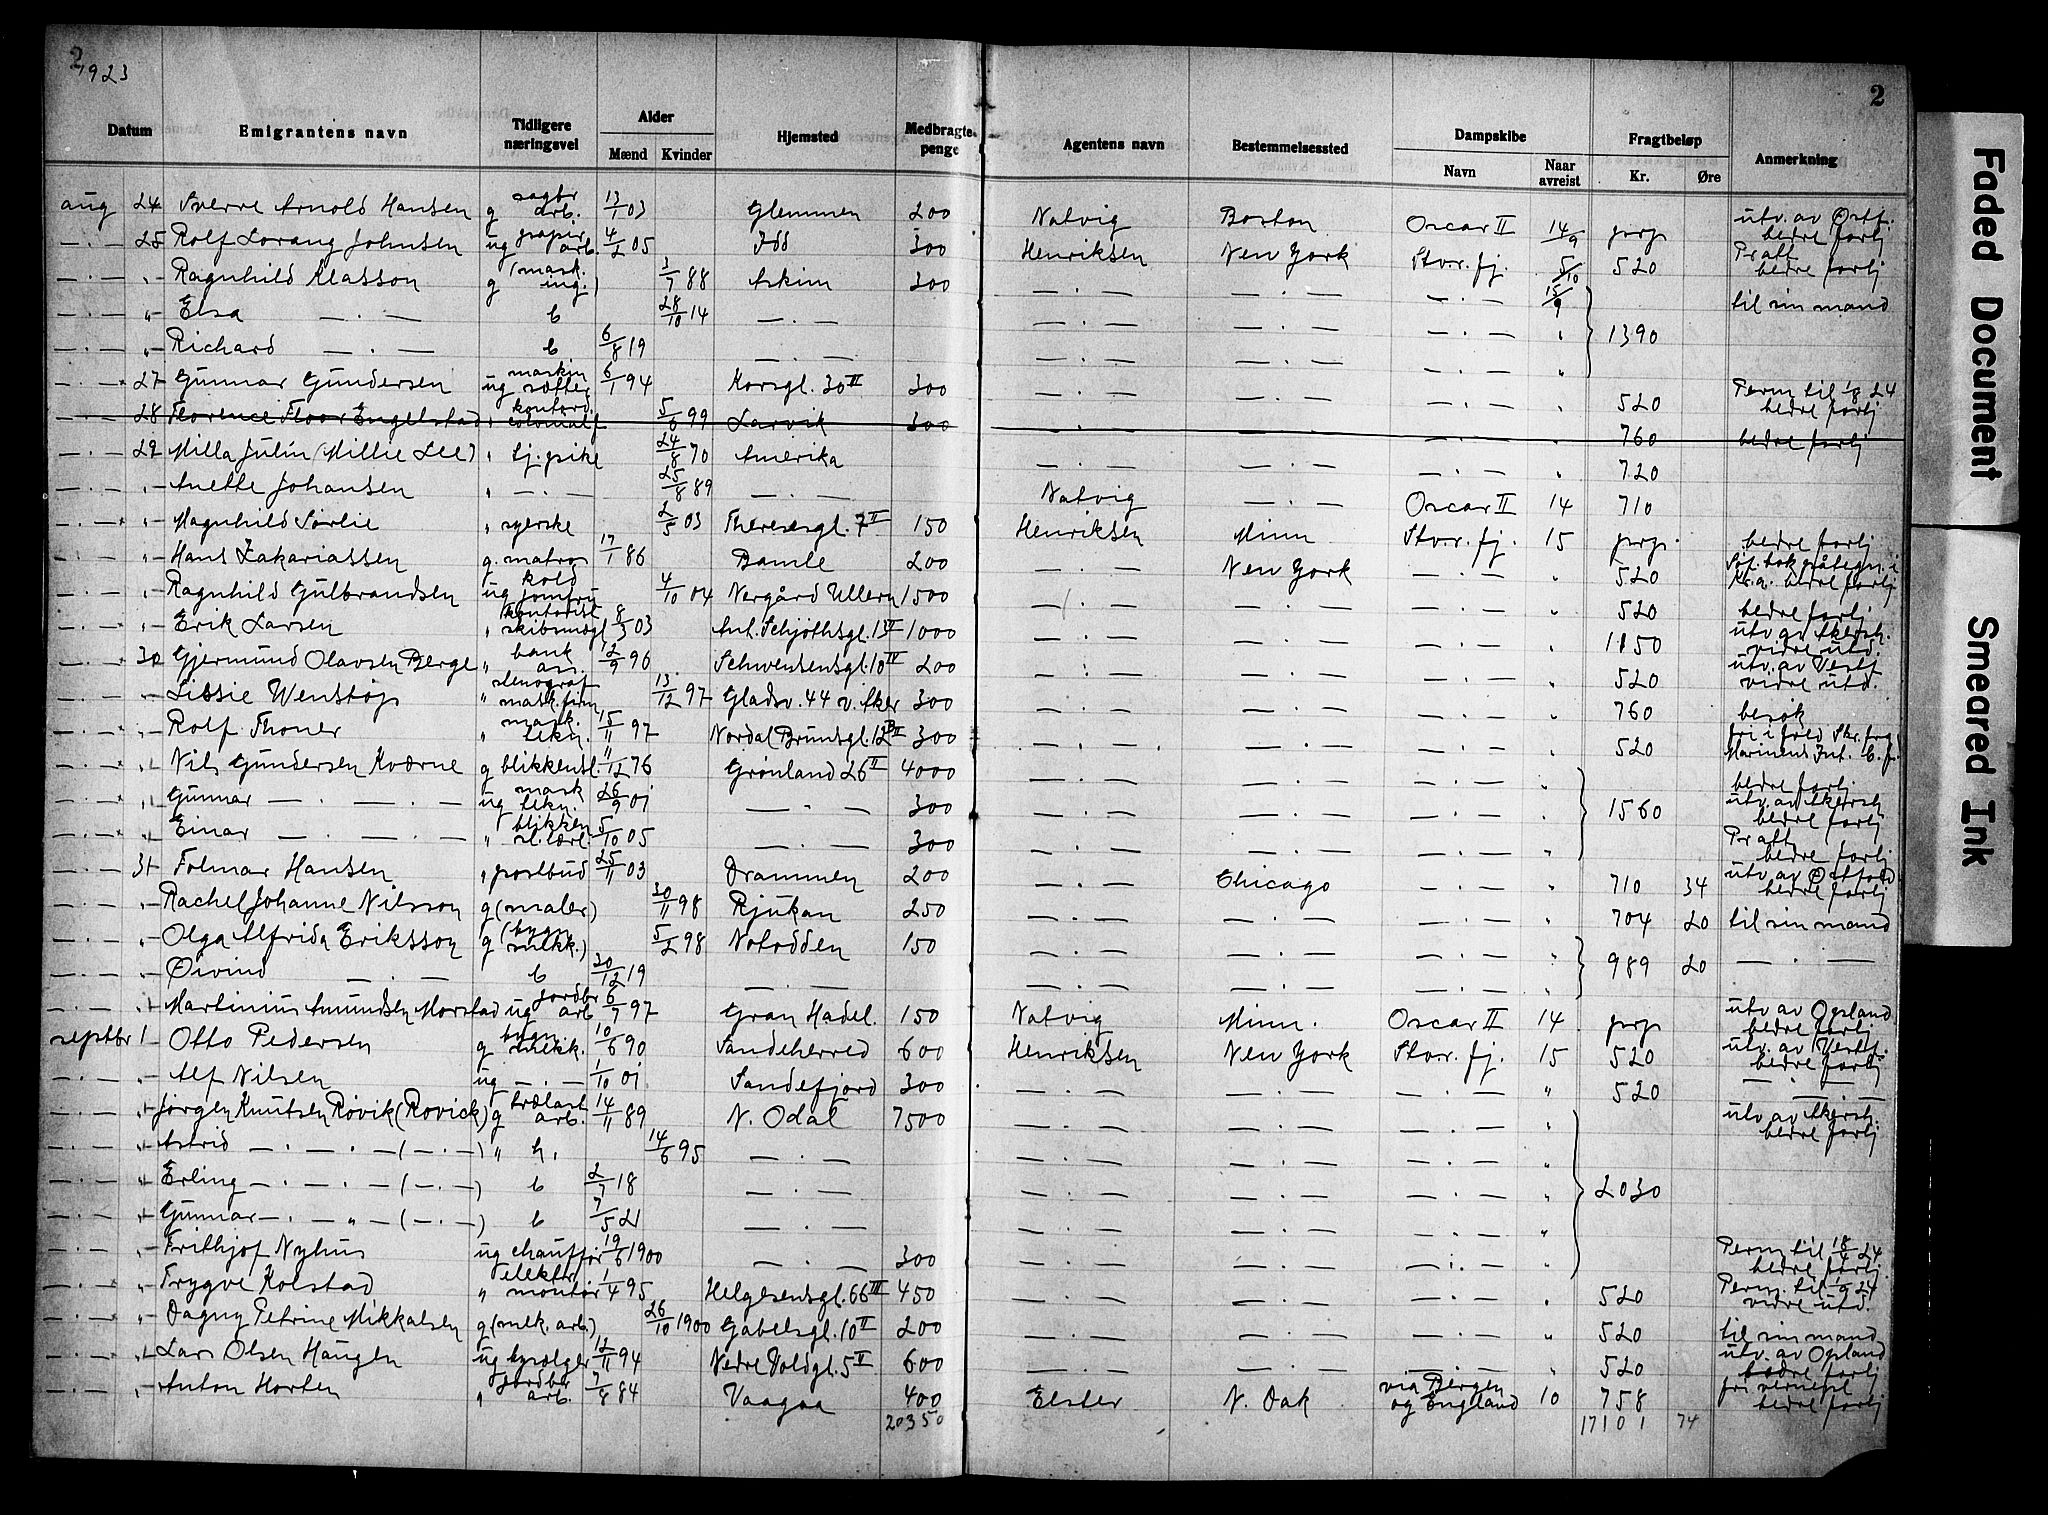 2
1923
2
Datum Emigrantens navn Tidligere næringsvei Alder Mænd Kvinder Hjemsted Medbragte penge Agentens navn Bestemmelsessted Dampskibe Navn Naar avreist Fragtbeløp Kr. Øre Anmerkning
aug 24 Sverre Arnold Hansen g sagbr arb. 13/1 03 Glemmen 200 Natvig Boston Oscar II 14/9 prp utv. av Østf. bedre forhj
— . — 25 Rolf Lorang Johnsen ug papir arb. 4/2 05 Idd 300 Henriksen New York Stvr. fj. 5/10 520 Pratt bedre forhj
— . — " Ragnhild Klasson g (mask. ing.) 3/7 88 Askim 300 — . — — . — — . — 15/9 til sin mand
— . — " Elsa — . — b 28/10 14 — . — — . — — . — — . — " 1390
— . — " Richard — . — b 6/8 19 — . — — . — — . — — . — "
— . — 27 Gunnar Gundersen ug maskin sætter 6/1 94 Korsgt. 30 II 300 — . — — . — — . — " 520 Perm til 1/8 24 bedre forhj
— . — 28 Florence Floor Engelstad " kontord. 5/6 99 Larvik 300 — . — — . — — . — " 760 bedre forhj
— . — 29 Milla Julin (Millie Lee) " tj. pike 24/8 70 Amerika — . — — . — — . — " 720
— . — " Anette Johansen " — . — 25/8 89 — . — Natvig — . — Oscar II 14 710
— . — " Magnhild Sørlie " syerske 2/5 03 Theresesgt. 7 II 150 Henriksen Minn Stvr. fj. 15 prp. bedre forhj
— . — " Hans Zakariassen g. matros 17/1 86 Bamle 200 — . — New York — . — " 520 Kr.a. bedre forhj
— . — " Ragnhild Gulbrandsen ug kold jomfru 4/10 04 Norgård Ullern 1500 — . — — . — — . — " 520 bedre forhj
— . — " Erik Larsen " kontorist skibsmegl 8/3 03 Ant. Schjøthsgt. 13 II 1000 — . — — . — — . — " 1150 utv. av Akersh. vidre utd.
— . — 30 Gjermund Olavsen Berge " bank ass. 12/9 96 Schwensensgt. 10 IV 200 — . — — . — — . — " 520 utv. av Vestf vidre utd.
— . — " Lissie Wenstøp " stenograf mask. 13/12 97 Gladsv. 44 v. Aker 300 — . — — . — — . — " 760 besøk
— . — " Rolf Thoner " mask. tekn. 15/11 97 Nordal Brunsgt. 12 B II 300 — . — — . — — . — " 520 fri i fred Marinens Int.
— . — " Nils Gundersen Kværne g blikkensl. 11/12 76 Grønland 26 II 4000 — . — — . — — . — " bedre forhj
— . — " Gunnar — . — . — ug mask tekn. 26/9 01 — . — 300 — . — — . — — . — " 1560 utv. av Akersh bedre forhj
— . — " Einar — . — . — " blikken sl. lærl. 5/10 05 — . — 300 — . — — . — — . — " Pratt bedre forhj
— . — 31 Folmar Hansen " postbud 25/11 03 Drammen 200 — . — Chicago — . — " 710 34 utv. av Østfold bedre forhj
— . — " Rachel Johanne Nilsson g (maler) 30/11 98 Rjukan 250 — . — — . — — . — " 704 20 til sin mand
— . — " Olga Alfrida Eriksson g (bygn snekk.) 5/2 98 Notodden 150 — . — — . — — . — " 989 20 — . —
— . — " Øivind — . — b 30/12 19 — . — — . — — . — — . — "
— . — " Martinius Amundsen Morstad ug jordbr arb 6/7 97 Gran Hadel. 150 Natvig Minn. Oscar II 14 prp utv av Opland bedre forhj
septbr 1 Otto Pedersen g bygn snekk. 10/6 90 Sandeherred 600 Henriksen New York Stvr. fj. 15 520 utv. av Vestf. bedre forhj
— . — " Alf Nilsen ug — . — 1/10 01 Sandefjord 300 — . — — . — — . — " 520 — . —
— . — " Jørgen Knutsen Røvik (Rovick) g trælast arb. 14/11 89 N. Odal 7500 — . — — . — — . — " utv av Akersh. bedre forhj
— . — " Astrid — . — . — (— . —) " h. 14/6 95 — . — — . — — . — — . — "
— . — " Erling — . — . — (— . —) b 2/7 18 — . — — . — — . — — . — " 2030
— . — " Gunnar — . — " — (— . —) b 7/5 21 — . — — . — — . — — . — "
— . — " Frithjof Nyhus ug chauffør 19/6 1900 — . — 300 — . — — . — — . — " Perm til 18/4 24 bedre forhj
— . — " Trygve Kolstad " elektr. montør 1/4 95 Helgesensgt. 66 III 450 — . — — . — — . — " 520 Perm. til 1/9 24 vidre utd.
— . — " Dagny Petrine Mikkalsen g (mek. arb.) 26/10 1900 Gabelsgt. 10 II 200 — . — — . — — . — " 520 til sin mand
— . — " Lars Olsen Haugen ug bysælger 12/11 94 Nedre Voldgt. 5 II 600 — . — — . — — . — " 520 utv. av Opland bedre forhj
— . — " Anton Horten " jordbr arb. 7/8 84 Vaagaa 400 Elster N. Dak via Bergen og England 10 758 fri vernepl bedre forhj
20350 17101 74
Faded Document
Smeared Ink